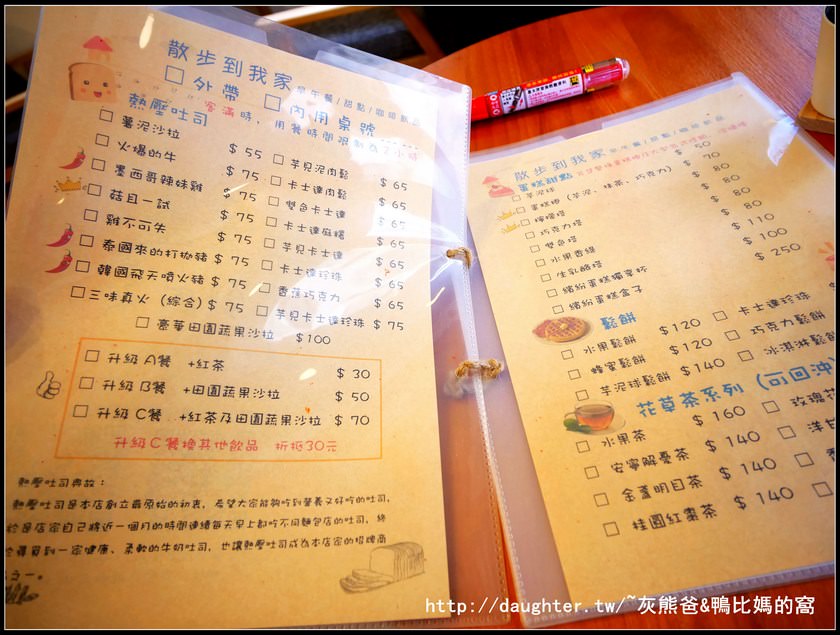 散步到我家 早午餐/甜點/咖啡
□ 外帶 □ 內用桌號
熱壓吐司 客滿時,用餐時間限制為2小時
□ 薯泥沙拉 $ 55
□ 火爆的牛 $ 75
□ 墨西哥辣妹雞 $ 75
□ 菇且一試 $ 75
□ 雞不可失 $ 75
□ 泰國來的打拋豬 $ 75
□ 韓國飛天噴火豬 $ 75
□ 三味真火 (綜合) $ 75
□ 芋見泥肉鬆 $ 65
□ 卡士達肉鬆 $ 65
□ 雙色卡士達 $ 65
□ 卡士達麻糬 $ 65
□ 芋見卡士達 $ 65
□ 卡士達珍珠 $ 65
□ 香蕉巧克力 $ 65
□ 芋見卡士達珍珠 $ 75
□ 豪華田園蔬果沙拉 $100
□ 升級 A餐 +紅茶 $ 30
□ 升級 B餐 +田園蔬果沙拉 $ 50
□ 升級 C餐 +紅茶及田園蔬果沙拉 $ 70
升級C餐換其他飲品 折抵30元
熱壓吐司典故:
熱壓吐司是本店創立最原始的初衷,希望大家能夠吃到營養又好吃的吐司,
於是店家自己將近一個月的時間連續每天早上都吃不同麵包店的吐司,終
於尋覓到一家健康、柔軟的牛奶吐司,也讓熱壓吐司成為本店家的招牌商
之一。
散步到我家 早午餐/甜點/咖啡
蛋糕甜點
□ 芋泥球 $ 50
□ 蛋糕捲 (芋泥、抹茶、巧克力) $ 70
□ 檸檬塔 $ 80
□ 巧克力塔 $ 80
□ 雙色塔 $ 80
□ 水果香緹 $ 80
□ 生乳酪塔 $ 110
□ 繽紛蛋糕獨享杯 $ 100
□ 繽紛蛋糕盒子 $ 250
鬆餅
□ 水果鬆餅 $120
□ 蜂蜜鬆餅 $120
□ 芋泥球鬆餅 $140
□ 卡士達珍珠
□ 巧克力鬆餅
□ 冰淇淋鬆餅
花草茶系列 (可回沖)
□ 水果茶 $ 160
□ 安寧解憂茶 $ 140
□ 金盞明目茶 $ 140
□ 桂圓紅棗茶 $ 140
□ 玫瑰花
□ 洋甘
http://daughter.tw/~灰熊爸&鴨比媽的窩